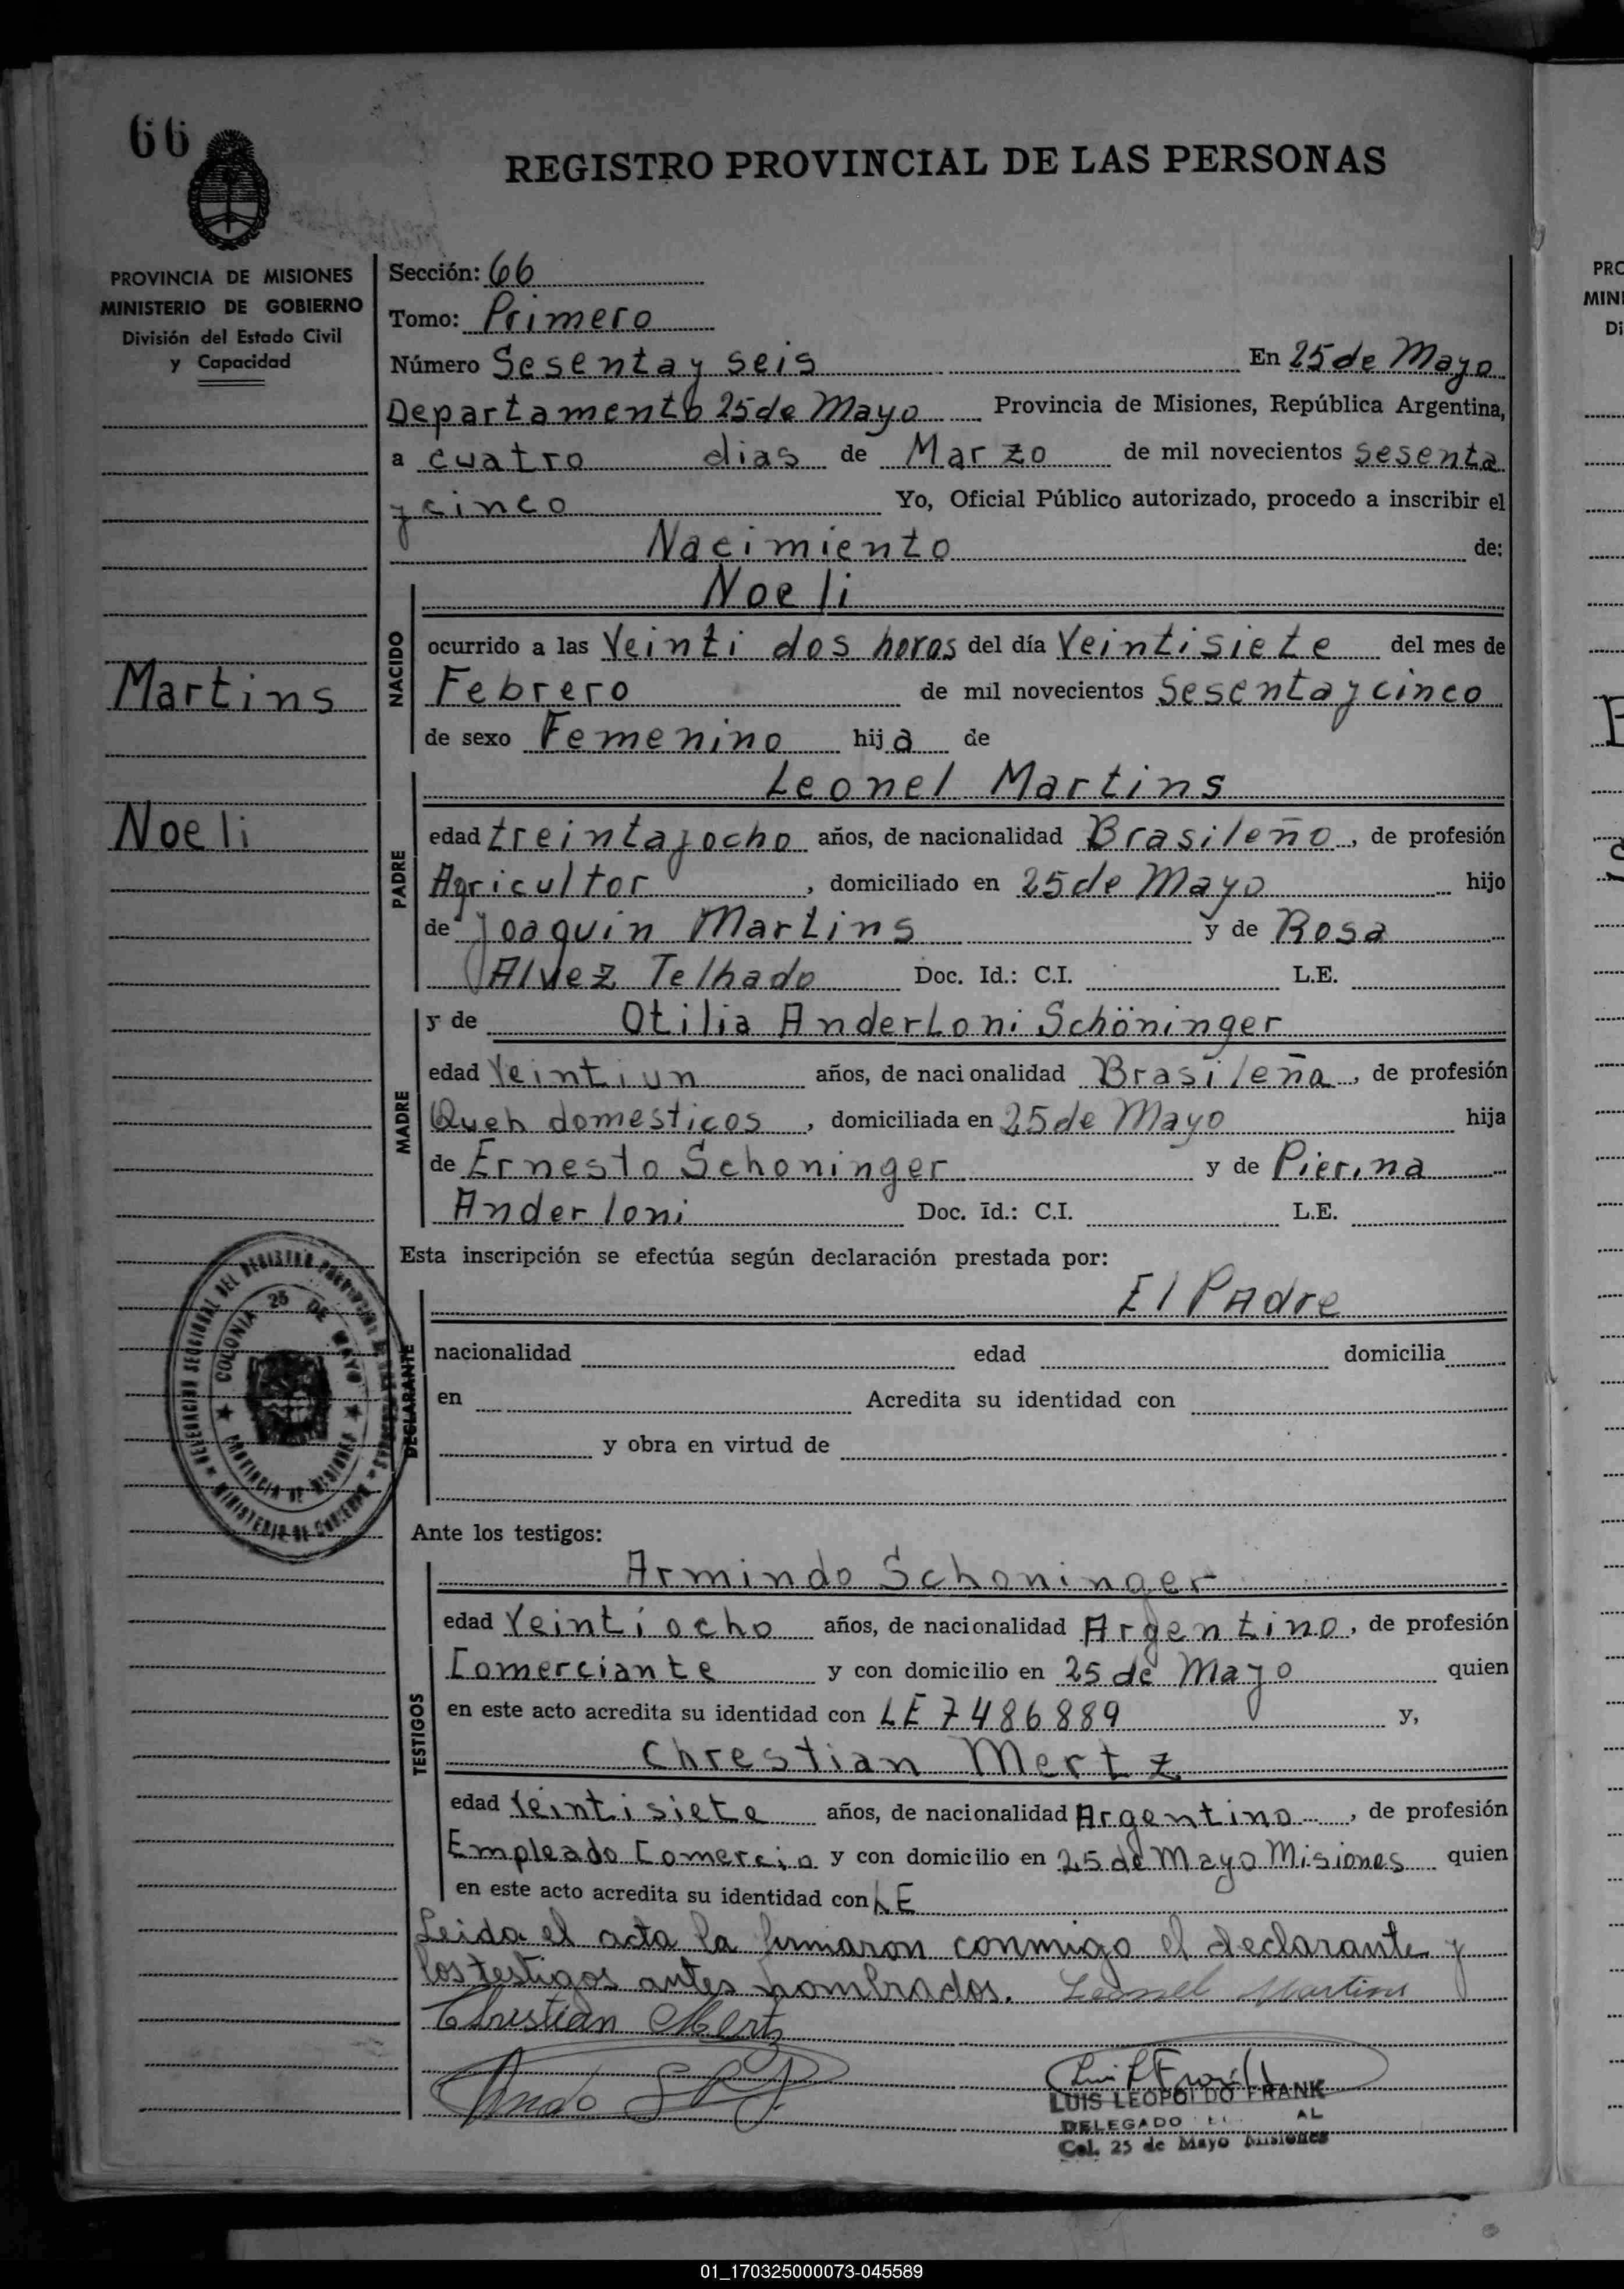 66
REGISTRO PROVINCIAL DE LAS PERSONAS
PROVINCIA DE MISIONES
MINISTERIO DE GOBIERNO
División del Estado Civil
y Capacidad
Martins
Noeli
Sección: 66
Tomo: Primero
Número Sesenta y seis En 25 de Mayo
Departamento 25 de Mayo Provincia de Misiones, República Argentina,
a cuatro dias de Marzo de mil novecientos sesenta
y cinco Yo, Oficial Público autorizado, procedo a inscribir el
Nacimiento de:
NACIDO
Noeli
ocurrido a las Veinti dos horas del día Veintisiete del mes de
Febrero de mil novecientos Sesenta y cinco
de sexo Femenino hija de
PADRE
Leonel Martins
edad treinta y ocho años, de nacionalidad Brasileño, de profesión
Agricultor, domiciliado en 25 de Mayo hijo
de Joaquin Martins y de Rosa
Alvez Telhado Doc. Id.: C.I. L.E.
MADRE
y de Otilia Anderloni Schöninger
edad Veintiun años, de nacionalidad Brasileña, de profesión
Queh domesticos, domiciliada en 25 de Mayo hija
de Ernesto Schoninger y de Pierina
Anderloni Doc. Id.: C.I. L.E.
Esta inscripción se efectúa según declaración prestada por:
DECLARANTE
El PAdre
nacionalidad edad domicilia
en Acredita su identidad con
y obra en virtud de
COLONIA 25 DE MAYO
PROVINCIA DE MISIONES
MINISTERIO DE GOBIERNO
Ante los testigos:
TESTIGOS
Armindo Schoninger
edad Veintiocho años, de nacionalidad Argentino, de profesión
Comerciante y con domicilio en 25 de Mayo quien
en este acto acredita su identidad con LE 7486889 y,
Chrestian Mertz
edad Veintisiete años, de nacionalidad Argentino, de profesión
Empleado Comercio y con domicilio en 25 de Mayo Misiones quien
en este acto acredita su identidad con LE
Leida el acta la firmaron conmigo el declarante y
los testigos antes nombrados. Leonel Martins
Christian Mertz
LUIS LEOPOLDO FRANK
DELEGADO
Col. 25 de Mayo Misiones
PRO
MINI
Di
01_170325000073-045589